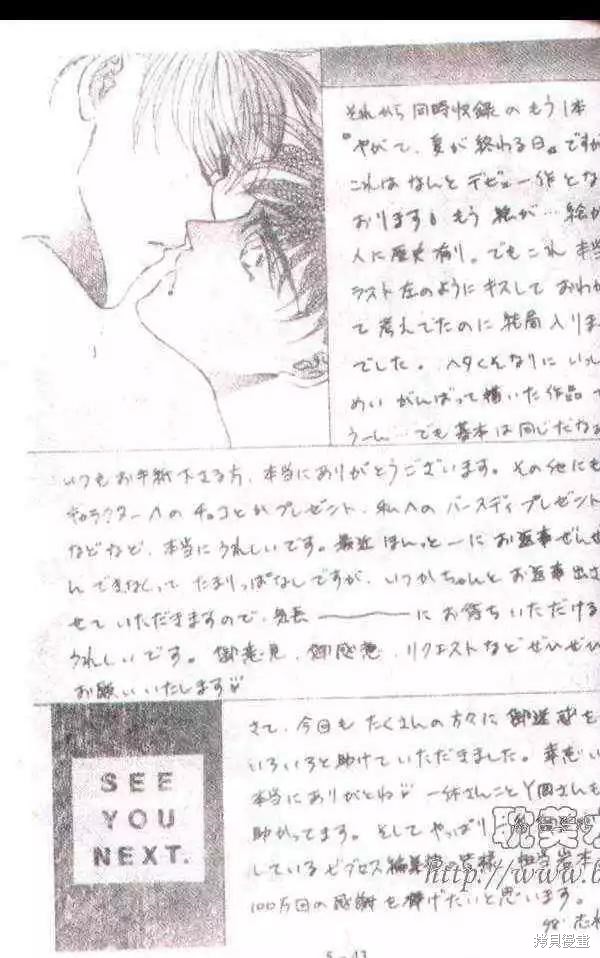 それから同時収録のもう1本
『やがて、夏が終わる日』ですが
これはなんとデビュー作とな
おります もう絵が…絵が
人に歴史有り。でもこれ本当
ラスト左のようにキスしておわ
て考えてたのに結局入りま
でした。ヘタくそなりにいっし
めいがんばって描いた作品で
うーん…でも基本は同じだなぁ
いつもお手紙下さる方、本当にありがとうございます。その他にも
キャラクターへのチョコとかプレゼント、私へのバースディプレゼント
などなど、本当にうれしいです。最近ほんっとーにお返事ぜんぜ
んできなくってたまりっぱなしですが、いつかちゃんとお返事出さ
せていただきますので、気長――――にお待ちいただける
うれしいです。御意見、御感想、リクエストなどぜひぜひ
お願いいたします
さて、今回もたくさんの方々に御迷惑を
いろいろと助けていただきました。
本当にありがとね 一休さんことY田さんも
助かってます。そしてやっぱり
しているビブロス編集部の皆様、担当岩本
100万回の感謝を捧げたいと思います。
98'
SEE
YOU
NEXT.
耽美
http://www.b
5-43
拷貝漫畫